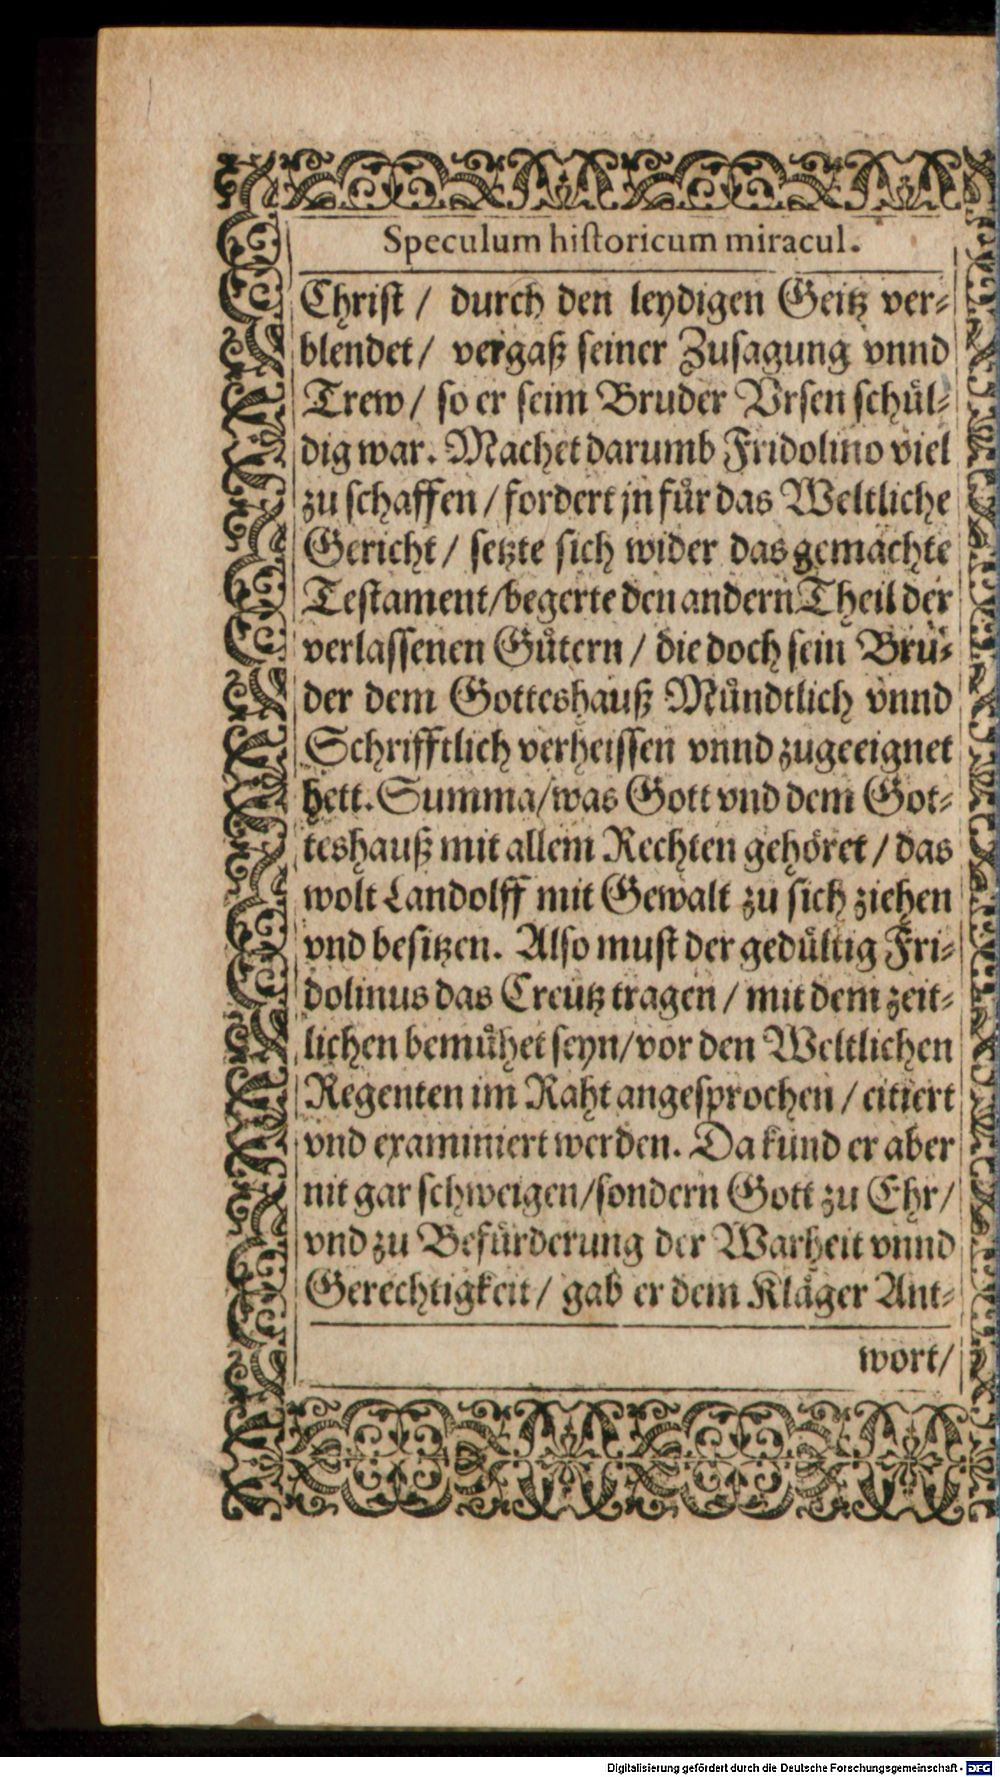 Speculum historicum miracul.
Christ / durch den leydigen Geitz ver-
blendet / vergaß seiner Zusagung vnnd
Trew / so er seim Bruder Vrsen schůl-
dig war. Machet darumb Fridolino viel
zu schaffen / fordert jn fůr das Weltliche
Gericht / setzte sich wider das gemachte
Testament / begerte den andern Theil der
verlassenen Gůtern / die doch sein Bru-
der dem Gotteshauß Můndtlich vnnd
Schrifftlich verheissen vnnd zugeeignet
hett. Summa / was Gott vnd dem Got-
teshauß mit allem Rechten gehöret / das
wolt Landolff mit Gewalt zu sich ziehen
vnd besitzen. Also must der gedůltig Fri-
dolinus das Creutz tragen / mit dem zeit-
lichen bemůhet seyn / vor den Weltlichen
Regenten im Raht angesprochen / citiert
vnd examiniert werden. Da kund er aber
nit gar schweigen / sondern Gott zu Ehr /
vnd zu Befůrderung der Warheit vnnd
Gerechtigkeit / gab er dem Kläger Ant-
wort /
Digitalisierung gefördert durch die Deutsche Forschungsgemeinschaft - DFG